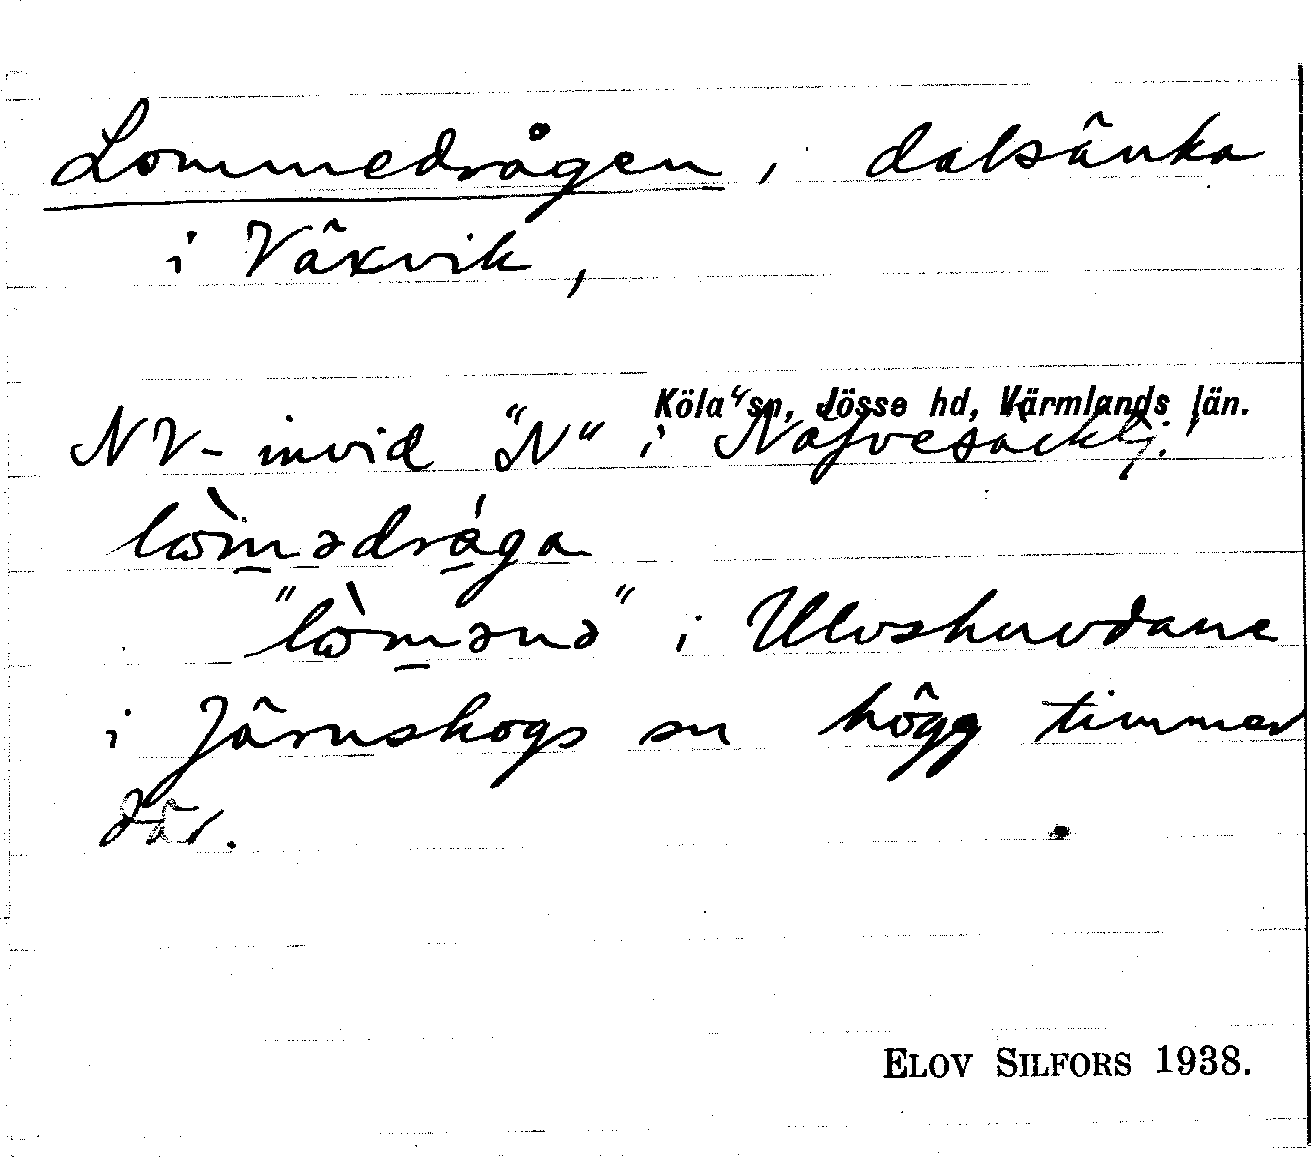 Lommedrågen, dalsänka
i Växvik,
Köla sn, Jösse hd, Värmlands län.
NV-invid "N" i Näfvesäcktj.
lòmədrága
"lòmənə" i Ulvshuvdane
i Järnskogs sn högg timmer
där.
ELOV SILFORS 1938.